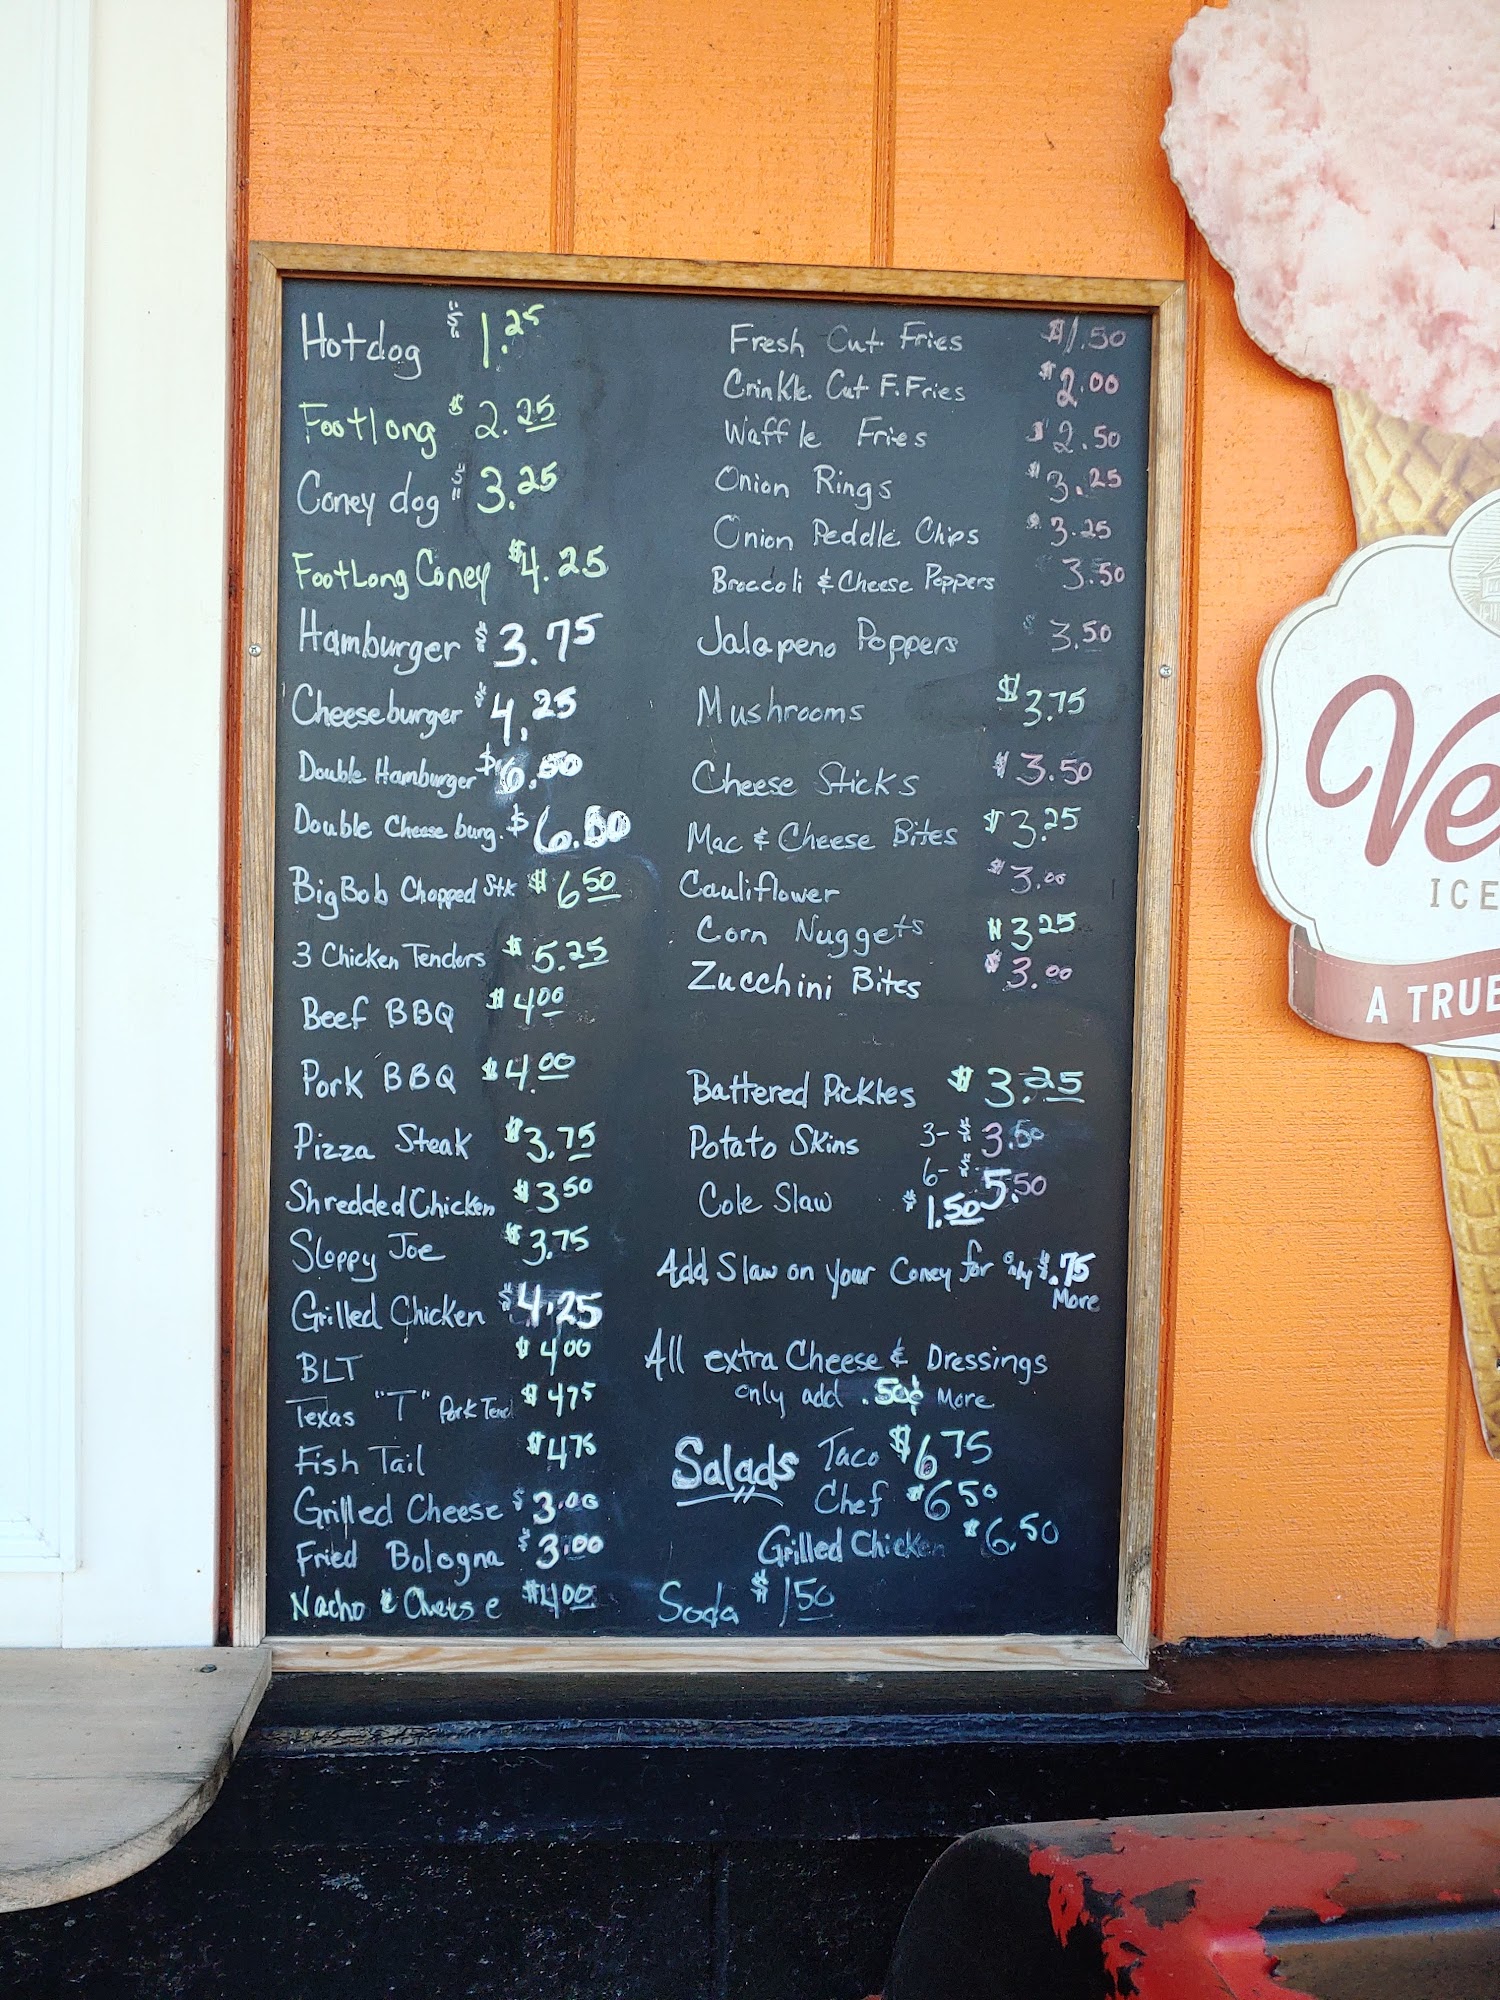 Hotdog $1.25
Footlong $2.25
Coney dog $3.25
FootLong Coney $4.25
Hamburger $3.75
Cheeseburger $4.25
Double Hamburger $6.00
Double Cheese burg. $6.50
Big Bob Chopped Stk $6.50
3 Chicken Tenders $5.25
Beef BBQ $4.00
Pork BBQ $4.00
Pizza Steak $3.75
Shredded Chicken $3.50
Sloppy Joe $3.75
Grilled Chicken $4.25
BLT $4.00
Texas "T" Pork Tend $4.75
Fish Tail $4.75
Grilled Cheese $3.00
Fried Bologna $3.00
Nacho & Cheese $4.00
Fresh Cut Fries $1.50
Crinkle Cut F. Fries $2.00
Waffle Fries $2.50
Onion Rings $3.25
Onion Peddle Chips $3.25
Broccoli & Cheese Poppers 3.50
Jalapeno Poppers $3.50
Mushrooms $3.75
Cheese Sticks $3.50
Mac & Cheese Bites $3.25
Cauliflower $3.00
Corn Nuggets $3.25
Zucchini Bites $3.00
Battered Pickles $3.25
Potato Skins 3- $3.50
6- $5.50
Cole Slaw $1.50
Add Slaw on your Coney for only $.75
More
All extra Cheese & Dressings
only add .50¢ More
Salads Taco $6.75
Chef $6.50
Grilled Chicken $6.50
Soda $1.50
ICE
A TRUE